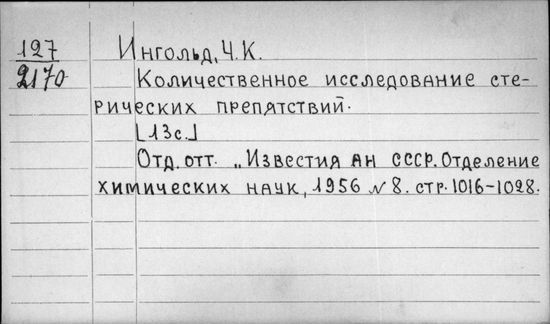 127 Ингольд, Ч.К.
2170 Количественное исследование сте-
рических препятствий.
[13с.]
Отд. отт. „Известия АН СССР. Отделение
химических наук, 1956 N 8. стр. 1016-1028.